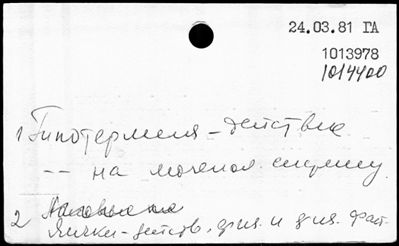 24.03.81 ГА
1013978
1014400
1 Гипотермия – действие
–– на мочепол. систему
2 Половые
Яички – действ. физ. и хим. факт.